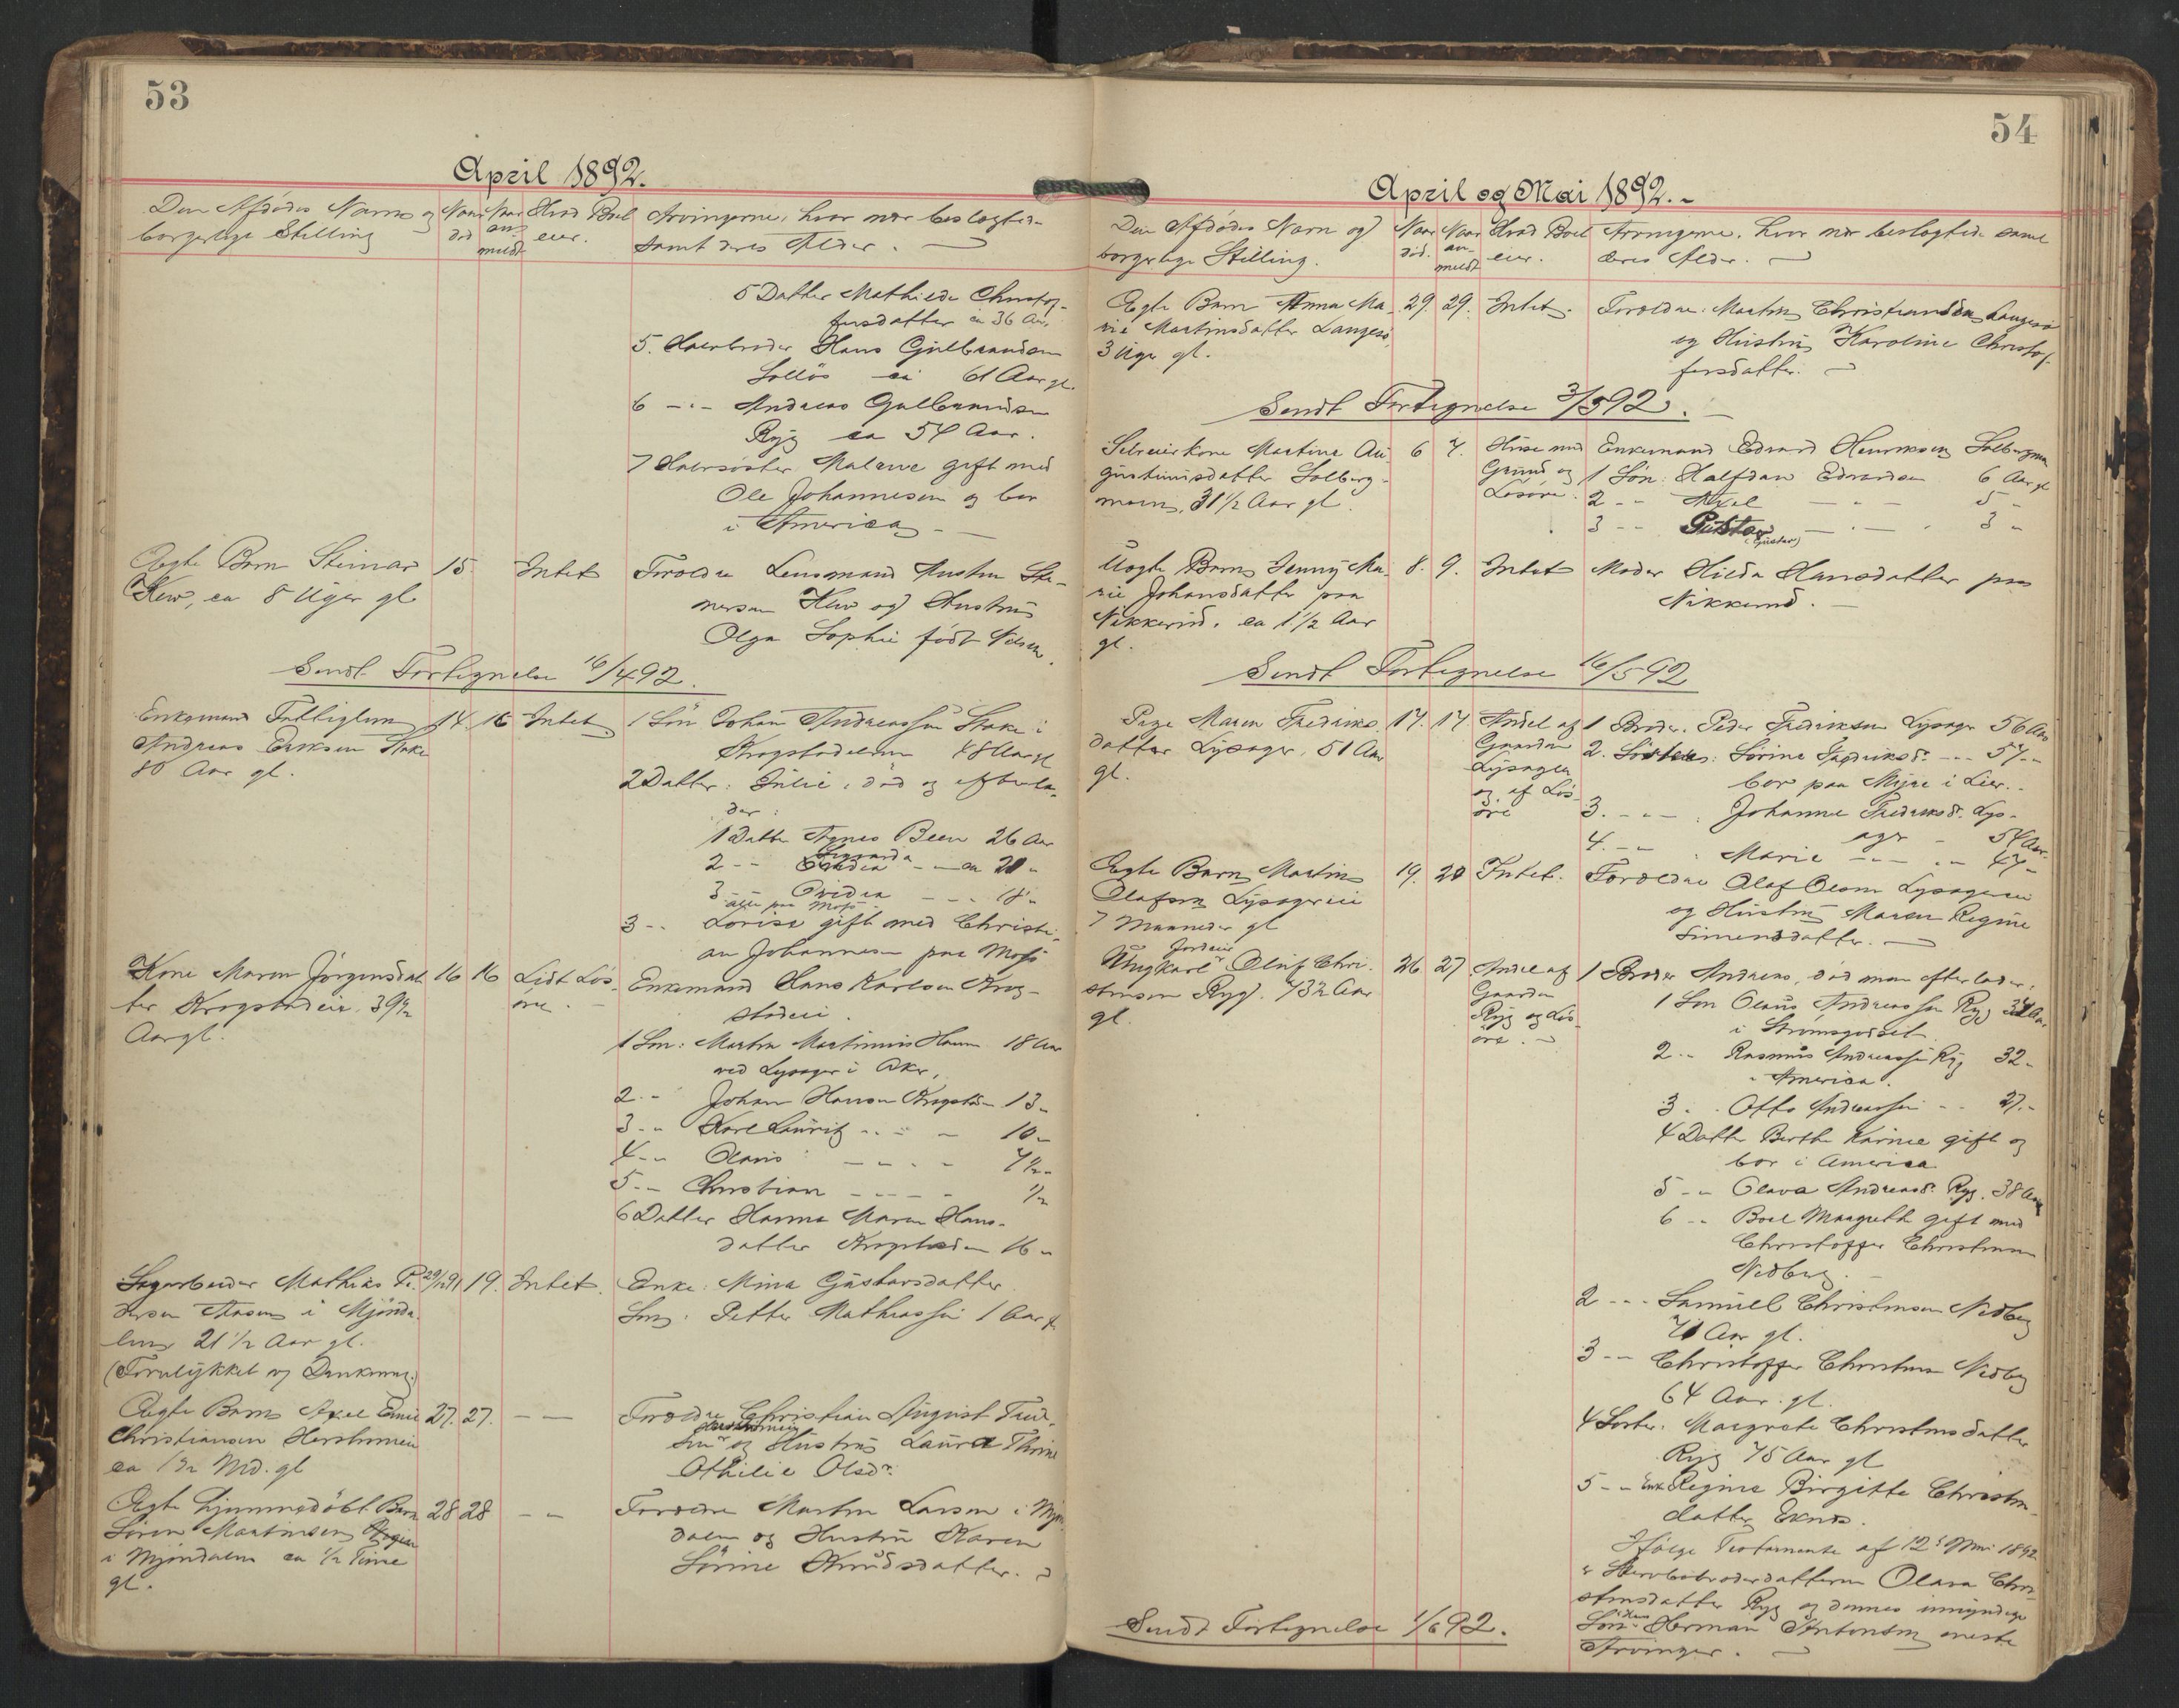 53
April 1892.
Den Afdødes Navn og
borgerlige Stilling
Naar
død
Naar
an-
meldt
Hvad Boet
eier.
Arvingerne, hvor nær beslægtede
samt deres Alder.
5 Datter Mathilde Christof-
fersdatter ca 36 Aar,
5. Halvbroder Hans Gulbrandsen
Solløs ca 61 Aar gl.
6 -"- Andreas Gulbrandsen
Ryg ca 54 Aar.
7 Halvsøster Malene gift med
Ole Johannesen og bor
i America
Ægte Barn Steinar
Kew, ca 8 Uger gl
15.
Intet
Forældre Lensmand Austin Stei-
nersen Kew og Hustru
Olga Sophie født Nilsen.
Sendt Fortegnelse 16/4 92.
Enkemand Fattiglem
Andreas Eriksen Stake
80 Aar gl.
14. 16 Intet
1 Søn Johan Andreassen Stake i
Krogstadelven 48 Aar gl
2 Datter: Julie, død og efterla-
der:
1 Datter Agnes Been 26 Aar
2 -"- ca 20 "
3 -"- Ovidea -"- 18 "
alle paa Moss
3 -"- Lovise gift med Christi-
an Johannesen paa Moss
Kone Maren Jørgensdat-
ter Krogstadeie, 39 1/2
Aar gl.
16 16 Lidt Løs-
øre.
Enkemand Hans Karlsen Krog-
stadeie.
1 Søn: Martin Martinius Hansen 18 Aar
ved Lysager i Aker,
2 -"- Johan Hansen Krogstad- 13 "
3 -"- Karl Lauritz -"- 10 "
4 -"- Olaus -"- 7 1/2 "
5 -"- Christian -"- 1/2
6 Datter Hanna Maren Hans-
datter Krogstadeie 16 "
Sagarbeider Mathias Pe-
dersen Aasen i Mjønda-
len 21 1/2 Aar gl.
(Forulykket og Drukning.)
29/12 91 19. Intet.
Enke: Mina Gustavsdatter
Søn: Petter Mathiassen 1 Aar gl
Ægte Barn Axel Emil
Christiansen Herstrømeie
ca 1 1/2 Md. gl
27. 27. - -
Forældre Christian August Frede-
Herstrømeie
sen og Hustru Laura Thrine
Othilie Olsdr.
Ægte hjemmedøbt Barn
Søren Martinsen
i Mjøndalen ca 1/2 Time
gl.
28 28 - -
Forældre Martin Larsen i Mjøn-
dalen og Hustru Karen
Sørine Knudsdatter.
54
April og Mai 1892.-
Den Afdødes Navn og
borgerlige Stilling.
Naar
død.
Naar
an-
meldt
Hvad Boet
eier.
Arvingerne, hvor nær beslægtede samt
deres Alder.
Ægte Barn Anna Ma-
rie Martinsdatter Langesø,
3 Uger gl.
29. 29. Intet.
Forældre: Martin Christiansen Langesø
og Hustru Karoline Christof-
fersdatter.
Sendt Fortegnelse 3/5 92.
Selveierkone Martine Au-
gustinusdatter Solberg-
moen, 31 1/2 Aar gl.
6 7. Huse med
Grund og
Løsøre.
Enkemand Edvard Henriksen Solbergmoen
1 Søn: Halfdan Edvardsen 6 Aar gl
2 -"- Axel -"- 5 "
3 -"- Gustav -"- 3 "
(Gustav)
Uægte Barn Jenny Ma-
rie Johansdatter paa
Nikkerud. ca 1 1/2 Aar
gl.
8. 9. Intet
Moder Hilda Hansdatter paa
Nikkerud.
Sendt Fortegnelse 16/5 92
Pige Maren Fredriks-
datter Lysager, 51 Aar
gl.
17. 17. Andel af
Gaarden
Lysager
og af Løs-
øre
1 Broder. Peder Fredriksen Lysager 56 Aar
2. Søster: Sørine Fredriksd. -"- 57 "
bor paa Myre i Lier.
3. -"- Johanne Fredriksd. Lys-
ager - 54 Aar.
4. -"- Marie -"- 47 "
Ægte Barn Martin
Olafsen Lysagereie
7 Maaneder gl
19. 20 Intet.
Forældre Olaf Olsen Lysagereie
og Hustru Maren Regine
Simensdatter.
Jordeier
Ungkarl Oluf Chri-
stensen Ryg. 73 1/2 Aar
gl.
26. 27 Andel af
Gaarden
Ryg og Løs-
øre.
1 Broder Andreas, død man efterlader,
1 Søn Olaus Andreassen Ryg Aar
i Strømsgodset
2 -"- Rasmus Andreassen Ryg 32 "
i America.
3 -"- Otto Andreassen -"- 27. "
4 Datter Berthe Karine gift og
bor i America
5 -"- Olava Andreasd. Ryg. 38 Aar
6 -"- Boel Margrethe gift med
Christoffer Christensen
Nedberg.
2 -"- Samuel Christensen Nedberg
71 Aar gl.
3 -"- Christoffer Christensen Nedberg
64 Aar gl.
4 Søster: Margrete Christensdatter
Ryg 75 Aar gl
5 -"- Enke Regine Birgitte Christens-
datter Eknes.
Ifølge Testamente af 12te Mai 1892
er Stervbobroderdatteren Olava Chri-
stensdatter Ryg og dennes umyndige
Søn Herman Antonsen eneste
Arvinger.
Sendt Fortegnelse 1/6 92.